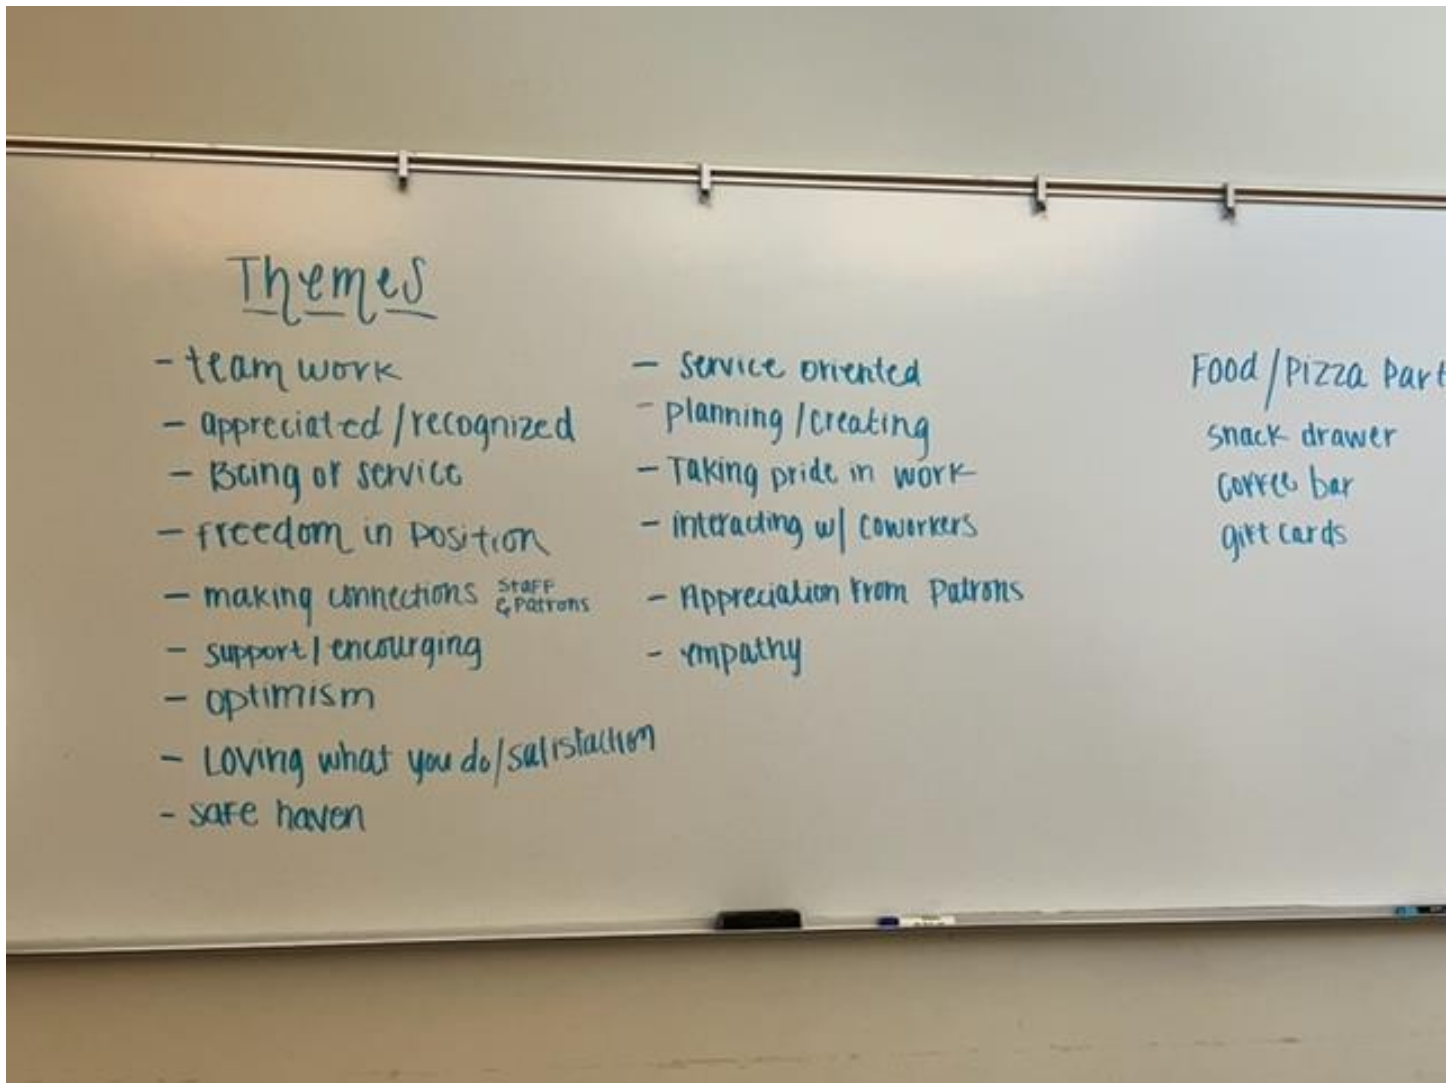 Themes
- team work
- appreciated/recognized
- Being of service
- freedom in position
- making connections staff & patrons
- support/encourging
- optimism
- Loving what you do/satisfaction
- safe haven
- service oriented
- planning/creating
- Taking pride in work
- interacting w/ coworkers
- Appreciation from Patrons
- empathy
Food/Pizza Part
snack drawer
coffee bar
gift cards